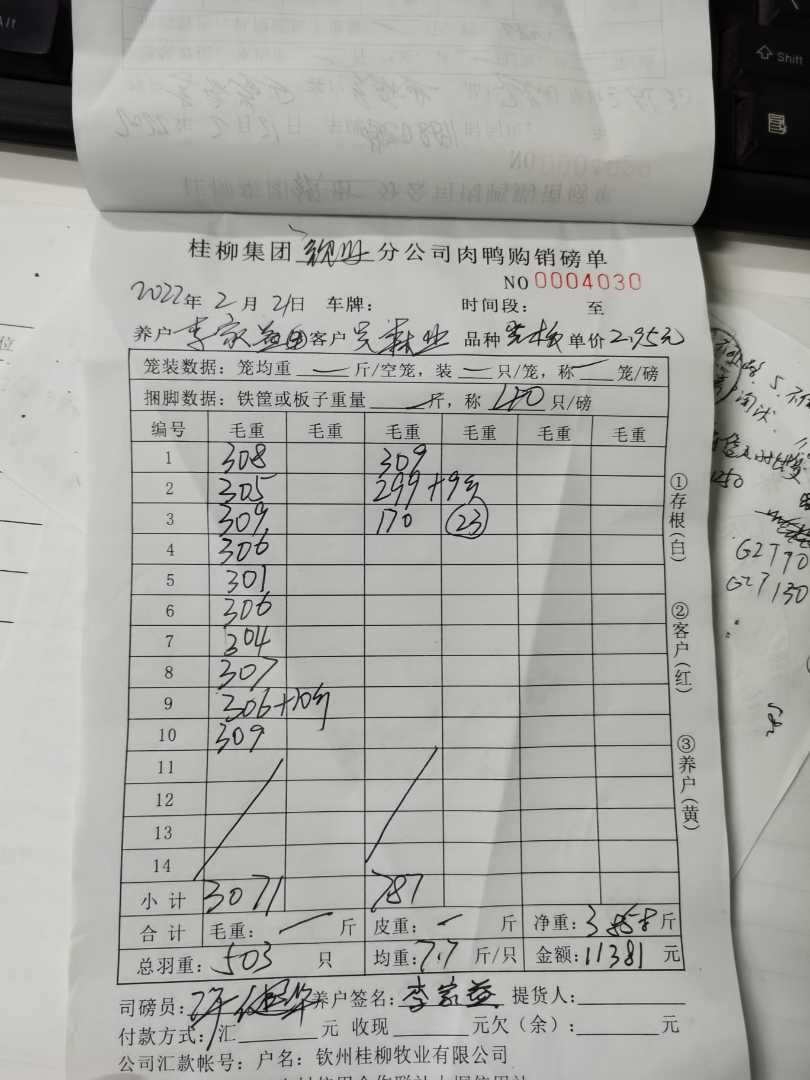 桂柳集团 钦州 分公司肉鸭购销磅单
NO 0004030
2022年 2月 21日 车牌： 时间段： 至
养户 李家益 客户 吴森业 品种 单价 2.95元
笼装数据：笼均重 — 斤/空笼，装 — 只/笼，称 — 笼/磅
捆脚数据：铁筐或板子重量 — 斤，称 40 只/磅
编号 毛重 毛重 毛重 毛重 毛重 毛重
1 308 309
2 305 299+9只
3 309 170 23
4 306
5 301
6 306
7 304
8 307
9 306+10只
10 309
11
12
13
14
小计 3071 787
合计 毛重： — 斤 皮重： — 斤 净重：3858斤
总羽重：503 只 均重：7.7 斤/只 金额：11381 元
司磅员： 养户签名：李家益 提货人：
付款方式：汇 元 收现 元欠（余）： 元
公司汇款帐号：户名：钦州桂柳牧业有限公司
①存根(白)
②客户(红)
③养户(黄)
G2790
G27130
Alt
Shift